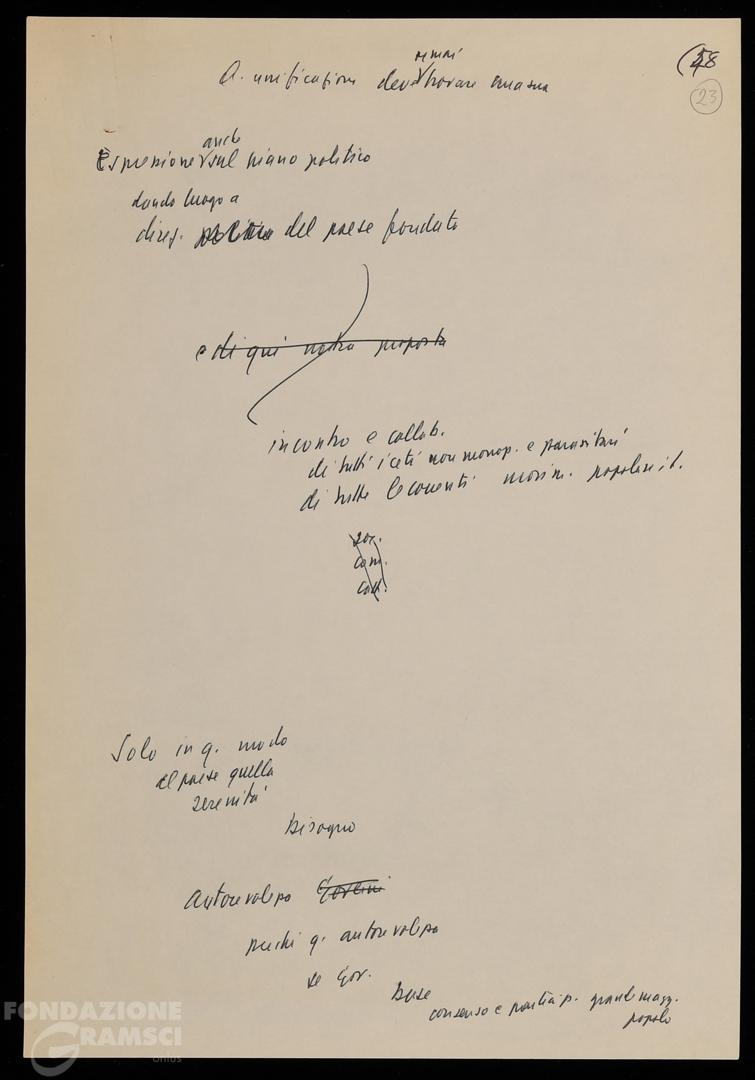 58
23
Q. unificazione deve ormai trovare una sua
Espressione anche sul piano politico
dando luogo a
direz. politica del paese fondata
e di qui nostra proposta
incontro e collab.
di tutti i ceti non monop. e parassitari
di tutte le correnti movim. popolare it.
soc.
com.
catt.
Solo in q. modo
al paese quella
serenità
Bisogno
Autorevolezza Governi
perché q. autorevolezza
se Gov.
Base
consenso e particip. grande magg.
popolo
FONDAZIONE
GRAMSCI
onlus